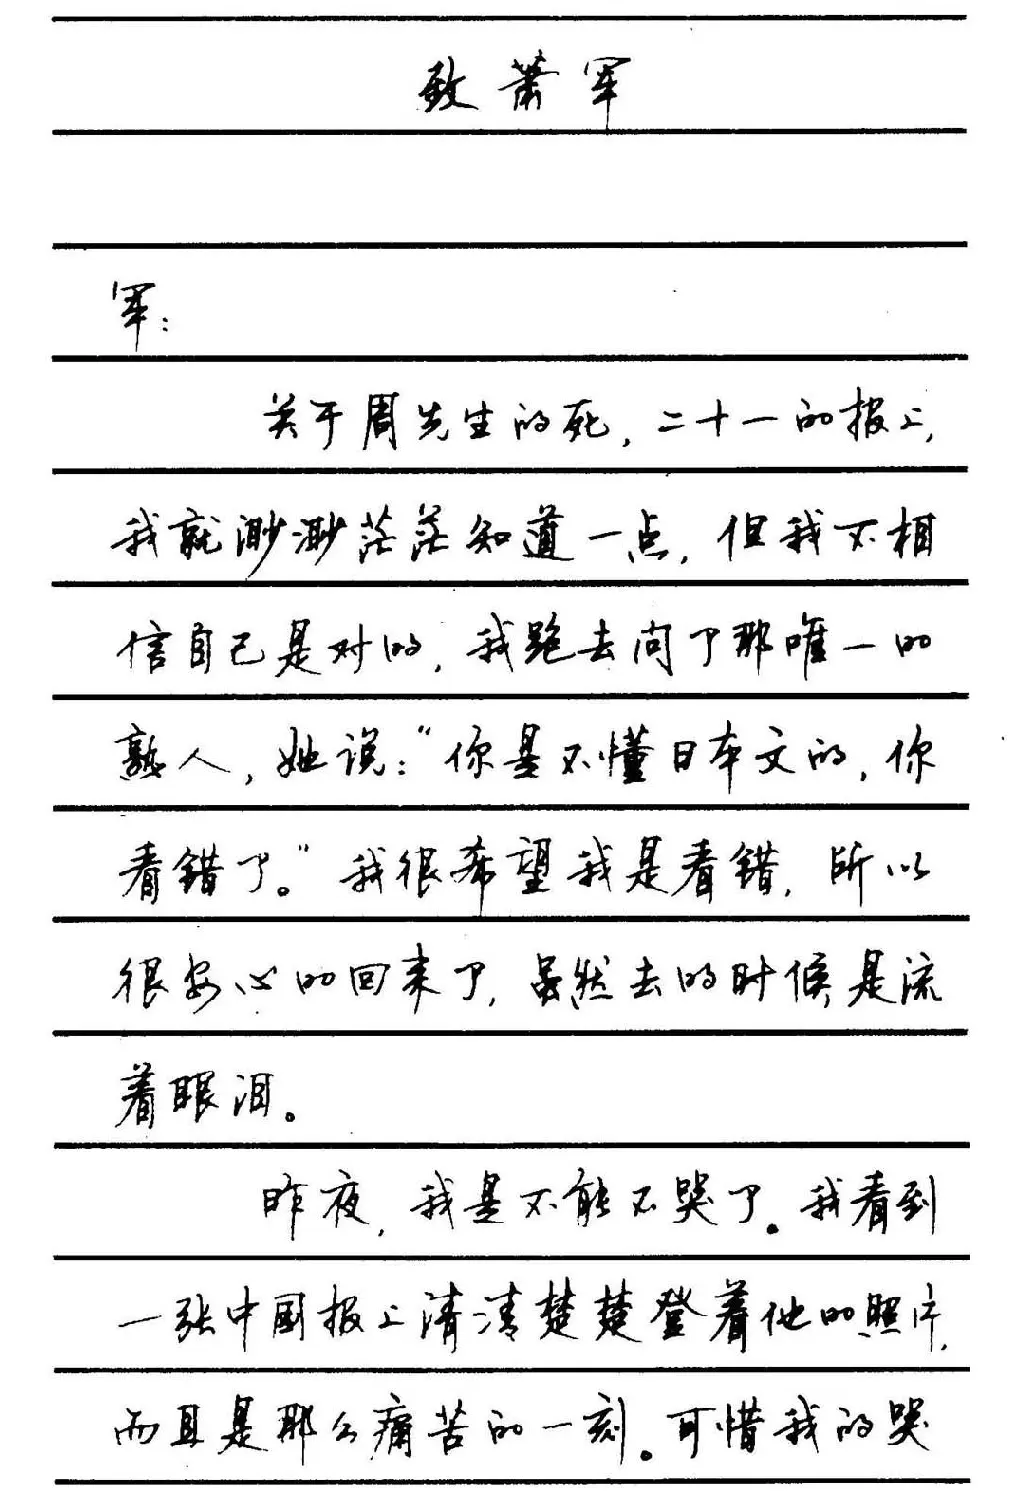 致萧军
军:
关于周先生的死,二十一的报上,
我就渺渺茫茫知道一点,但我不相
信自己是对的,我跑去问了那唯一的
熟人,她说:“你是不懂日本文的,你
看错了。”我很希望我是看错,所以
很安心的回来了,虽然去的时候是流
着眼泪。
昨夜,我是不能不哭了。我看到
一张中國报上清清楚楚登着他的照片,
而且是那么痛苦的一刻。可惜我的哭